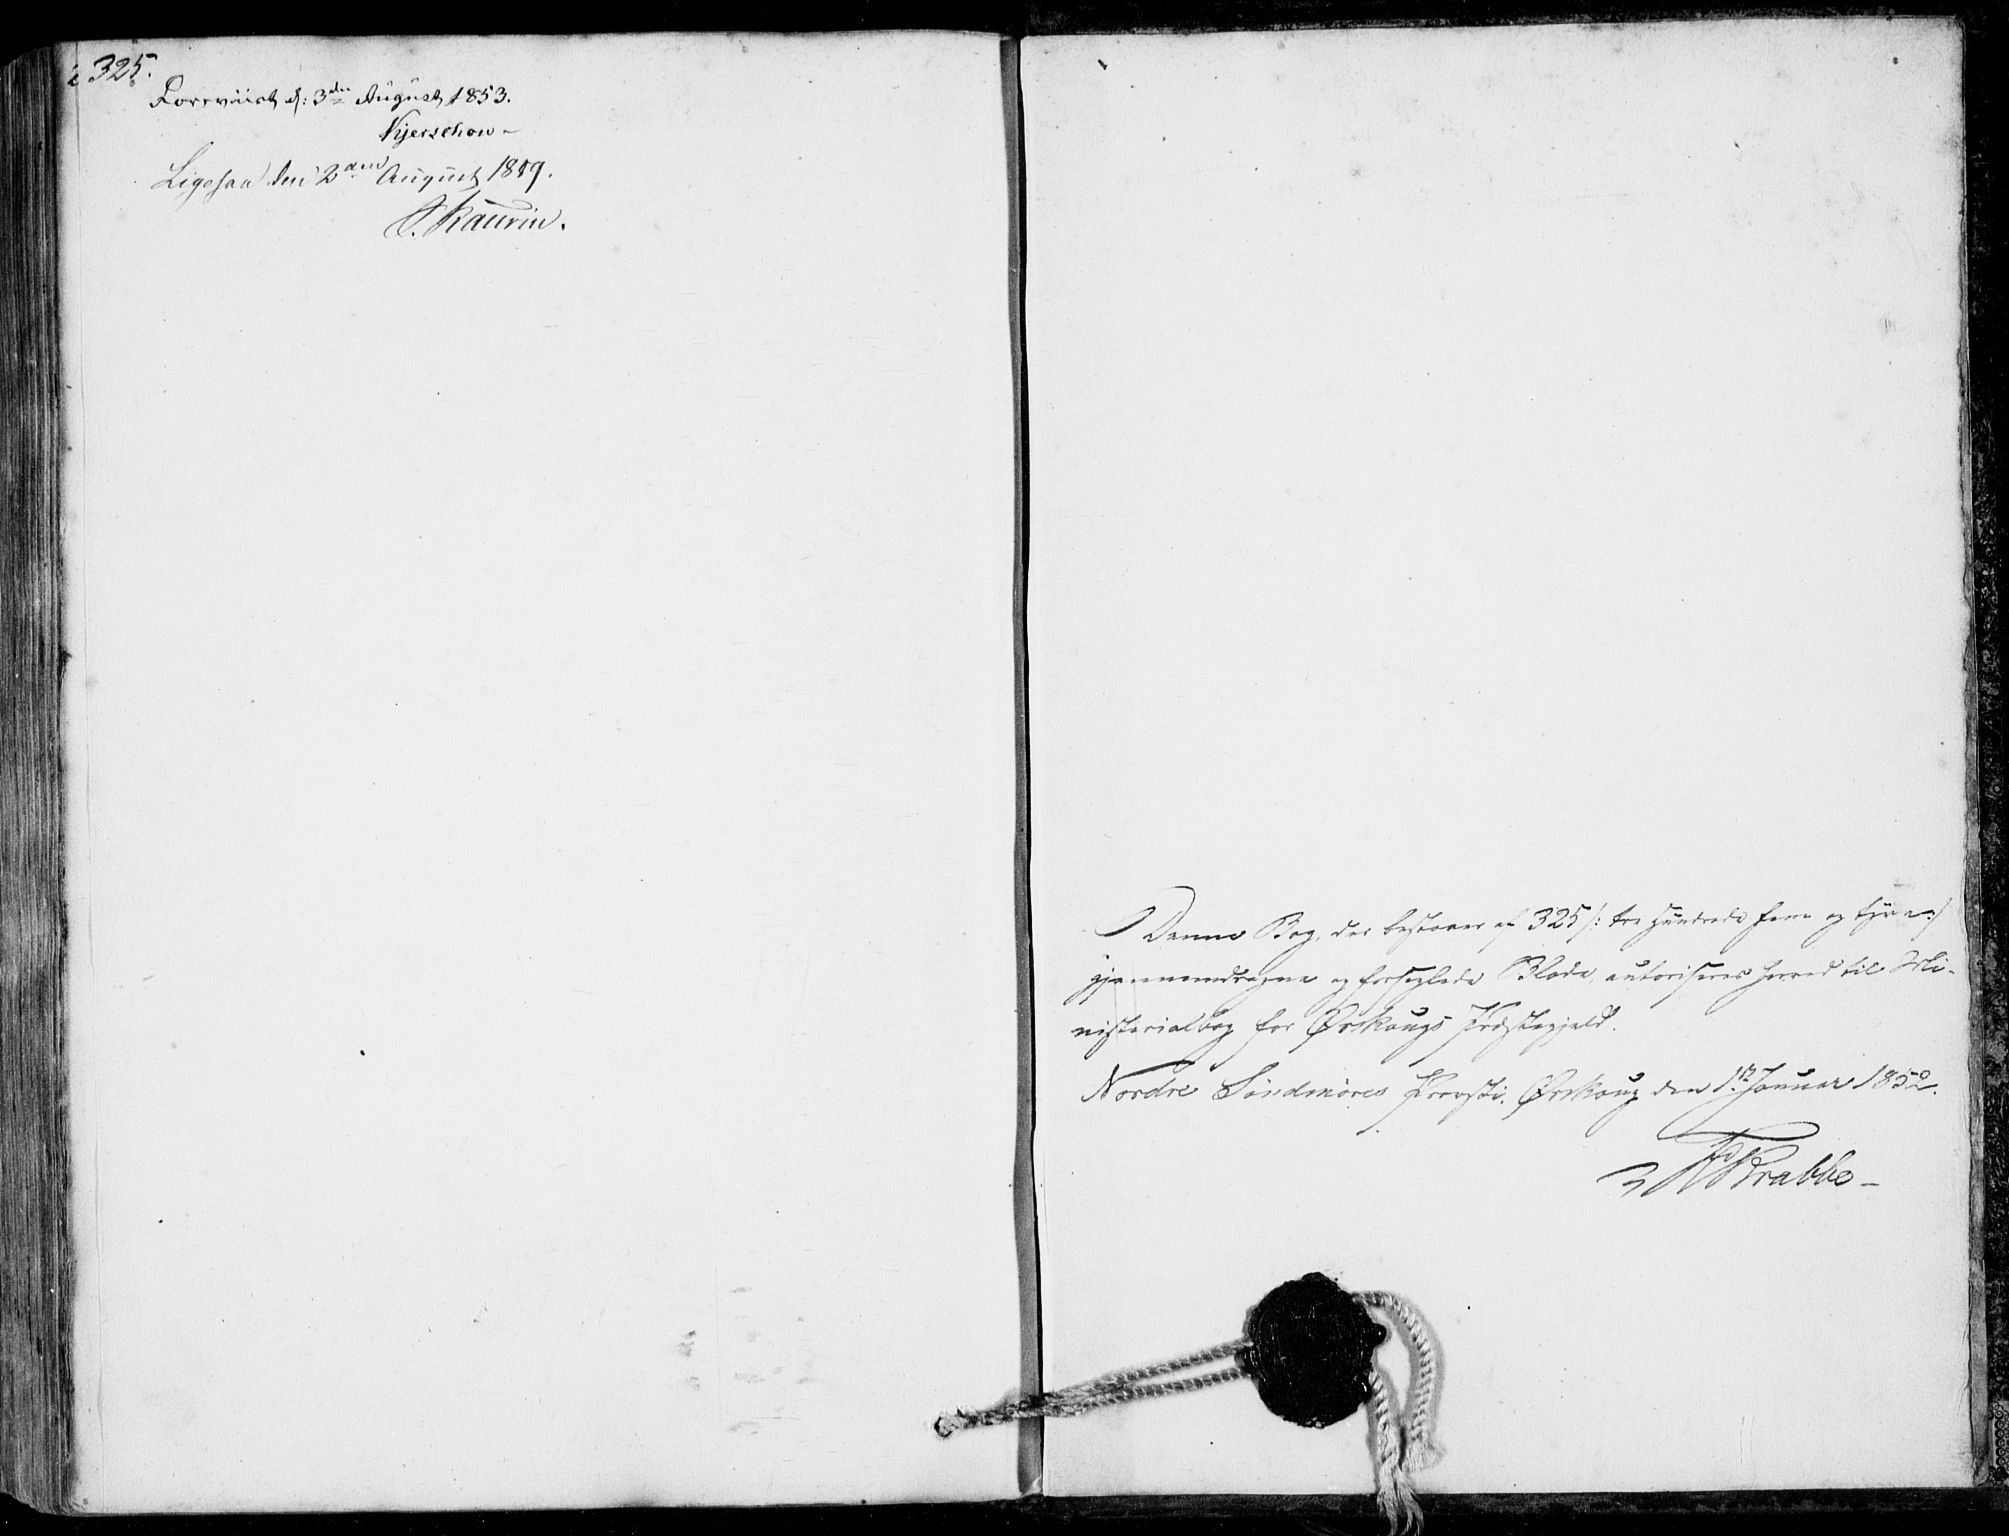 325.
Forevüist d: 3die August 1853.
Kjerschow
Ligesaa den 2den August 1859.
Kaurin.
Denne Bog, der bestaaer af 325 /: tre Hundrede fem og tyve :/
gjennemdragne og forseglede Blade, autoriseres herved til Mi-
nisterialbog for Ørskougs Præstegjeld.
Nordre Söndmöres Provsti, Ørskoug den 1ste Januar 1852.
Krabbe